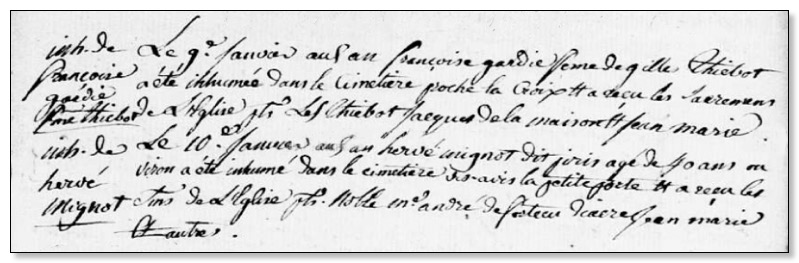 inh. de
françoise
gardie
fme thiebot
Le 9e Janvier aud an françoise gardie feme de gille Thiebot
a été inhumée dans le Cimetière poche la Croix Et a reçu les Sacremens
de L'Eglise pts. Les Thiebot Jacques de la maison Et Jean marie.
inh. de
hervé
mignot
Le 10e Janvier aud an hervé mignot dit joris agé de 40 ans ou
viron a été inhumé dans le cimetière vis avis la petite porte Et a reçu les
Sms de L'Eglise pts. Noble mre andré Jean marie
Et autres.